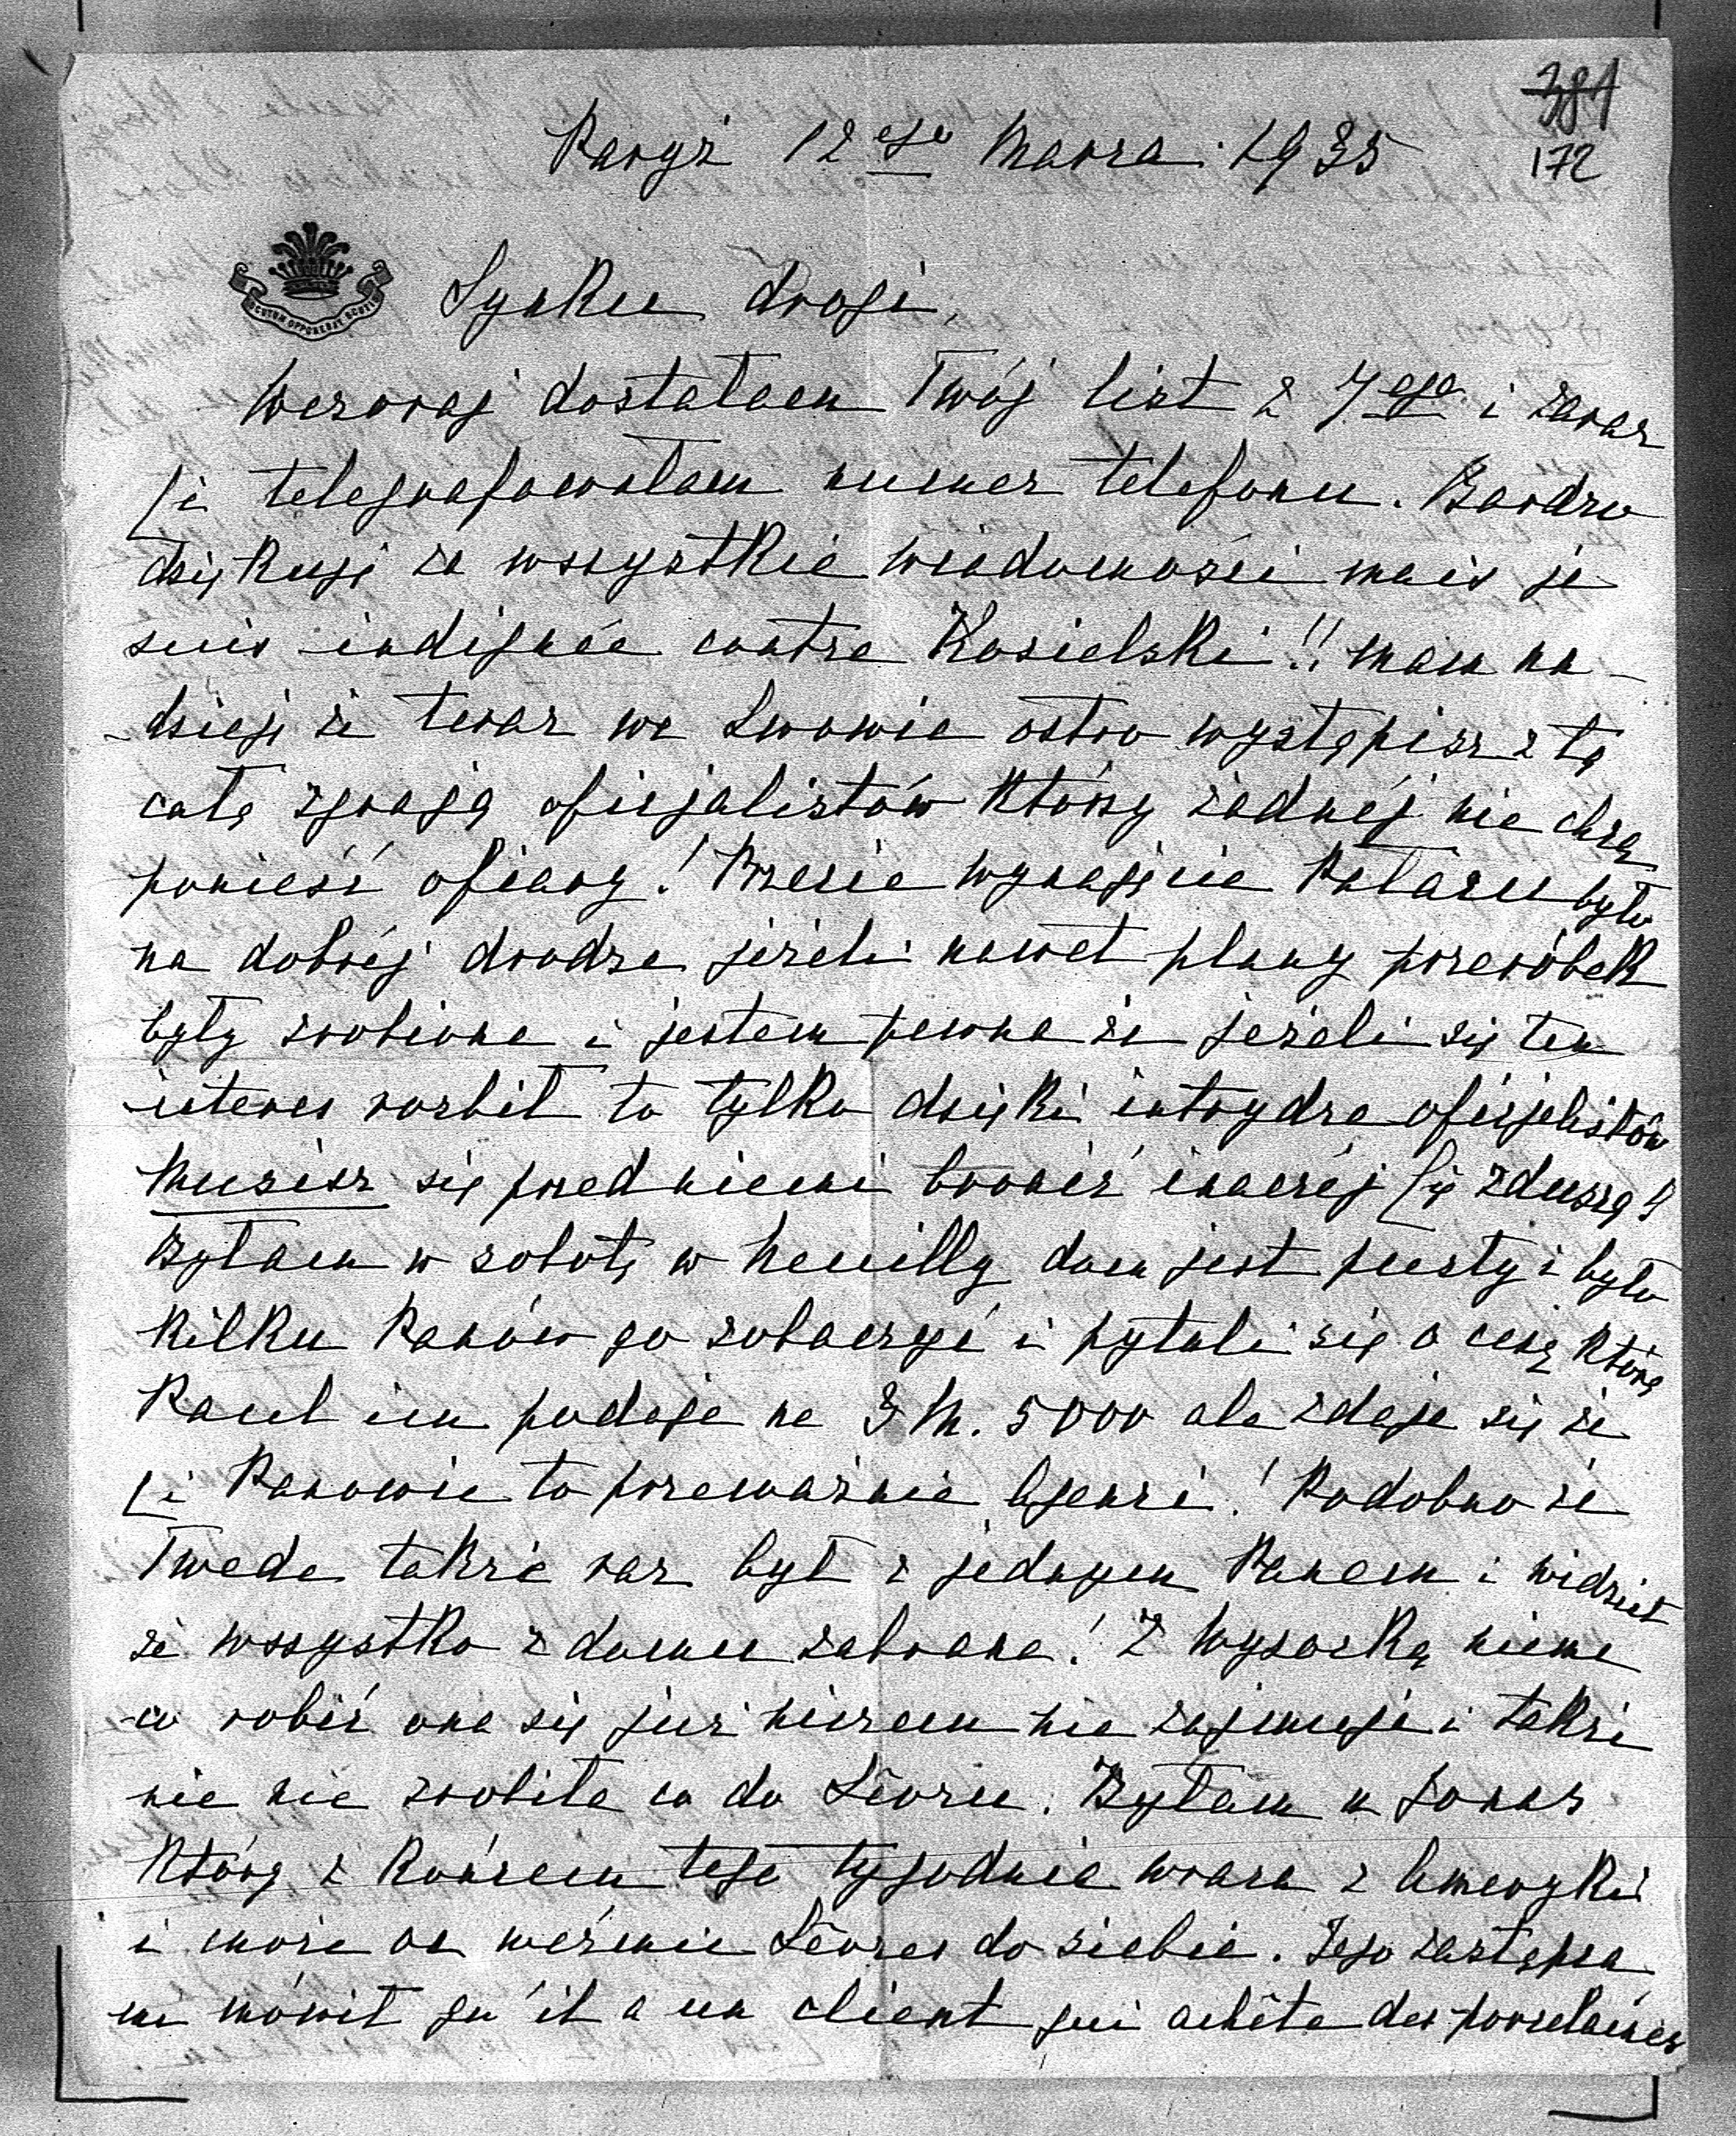 381
172
Paryż 12ego Marca 1935
Synku drogi,
Wczoraj dostałam Twój list z 7ego i zaraz
Ci telegrafowałam numer telefonu. Bardzo
dziękuję za wszystkie wiadomości mais je
suis indignée contre Kosielski!! Mam na-
dzieję że teraz we Lwowie ostro wystąpisz z tą
całą zgrają oficjalistów którzy żadnéj nie chcą
ponieść ofiary! Przecie wynajęcie Pałacu było
na dobréj drodze jeżeli nawet plany przeróbek
były zrobione i jestem pewna że jeżeli się ten
interes rozbił to tylko dzięki intrydze oficjalistów
Musisz się przed niemi bronić inaczéj Cię zduszą!
Byłam w sobotę w Neuilly dom jest pusty i było
kilku Panów go zobaczyć i pytali się o cenę którą
Paul im podaje na 3 M. 5000 ale zdaje się że
Ci Panowie to przeważnie Agenci! Podobno że
Twede także raz był z jednym Panem i widział
że wszystko z domu zabrane! Z Wysocką niema
co robić ona się już niczem nie zajmuje i także
nic nie zrobiła co do Sèvru. Byłam u Jonas
który z końcem tego tygodnia wraca z Ameryki
i może on weźmie Sèvres do siebie. Jego zastępca
mi mówił qu'il a un client qui achète des porcelaines